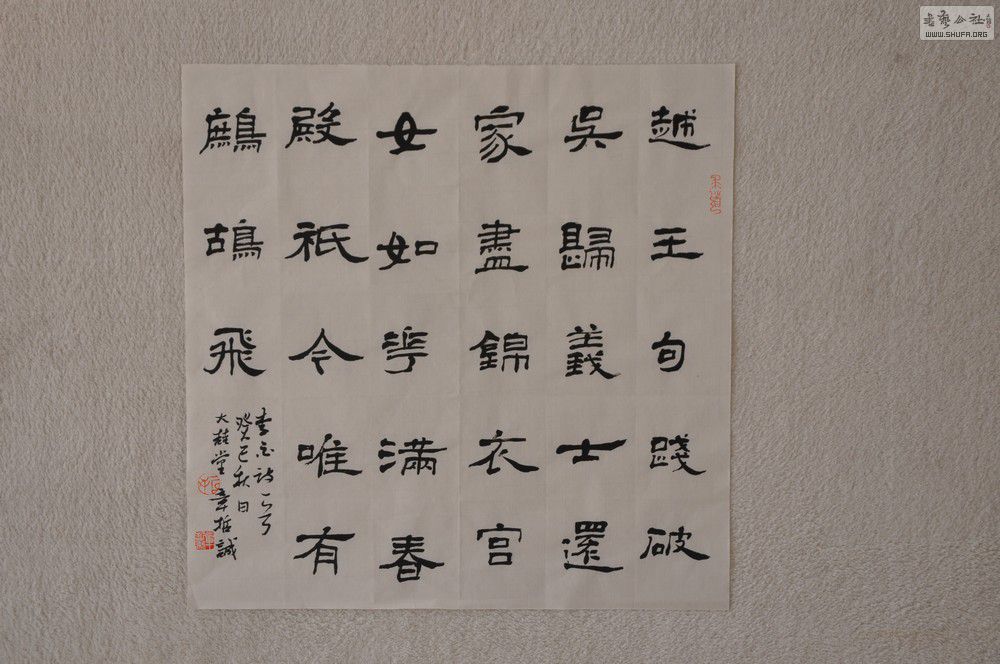 越王句踐破
吳歸義士還
家盡錦衣宮
女如花滿春
殿祇令唯有
鷓鴣飛
李白詩一首
癸巳秋日
大桂堂 章哲誠
書藝公社
WWW.SHUFA.ORG